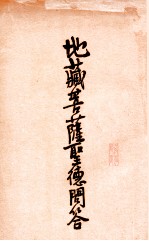 地藏菩薩聖德問答